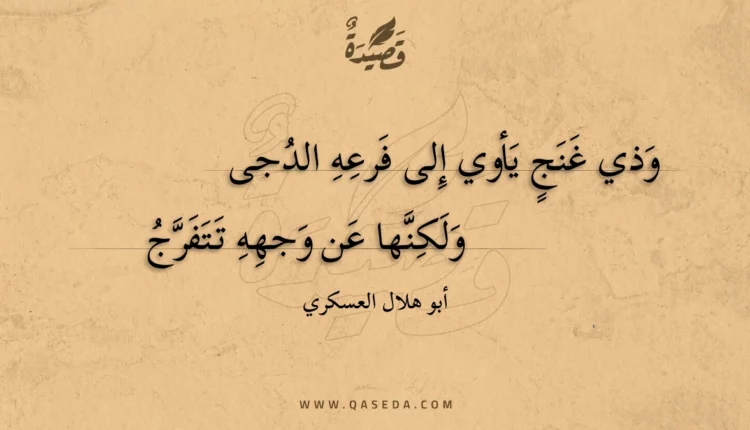 قَصِيْدَةٌ
وَذي غَنَجٍ يَأوي إِلى فَرعِهِ الدُجى
وَلَكِنَّها عَن وَجهِهِ تَتَفَرَّجُ
أبو هلال العسكري
WWW.QASEDA.COM